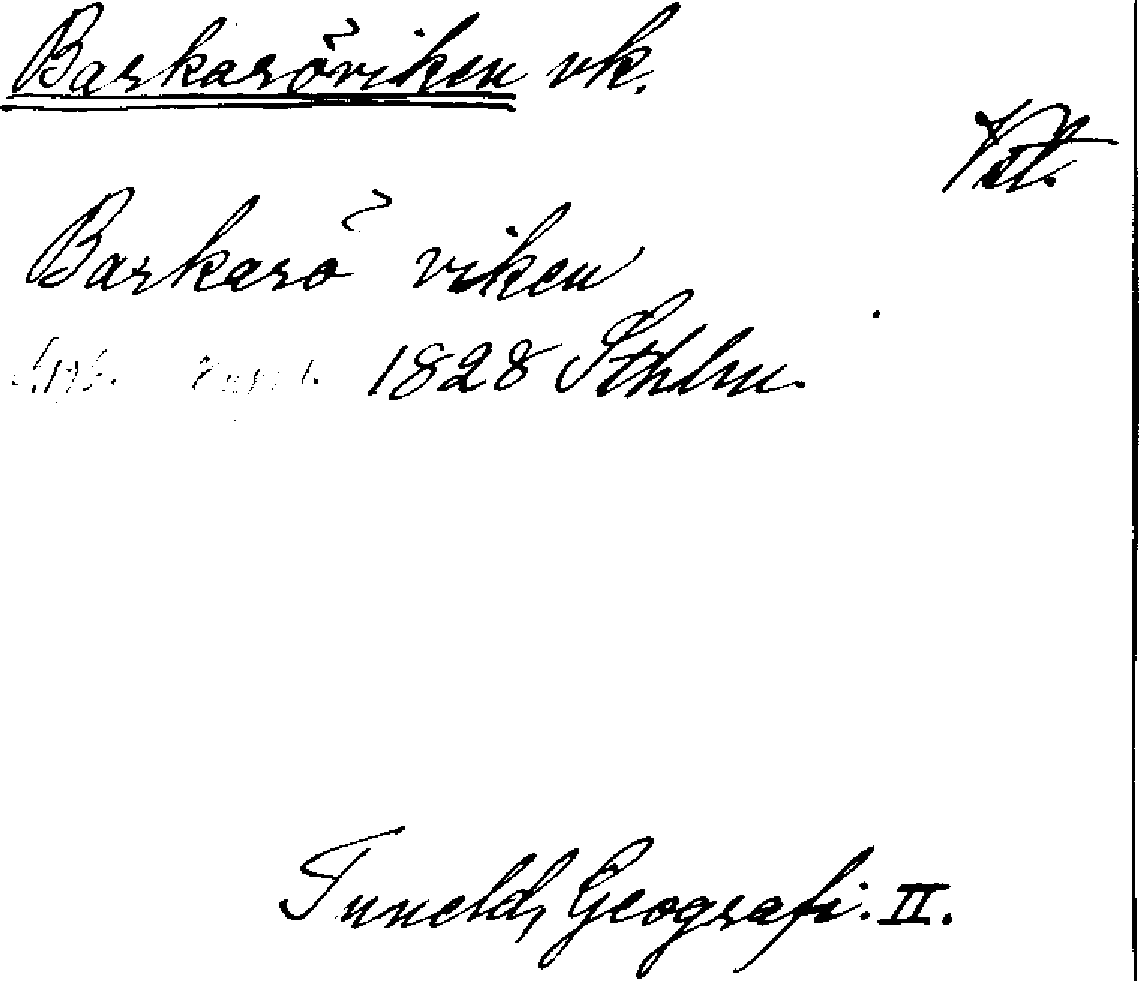 Barkaröviken vk.
Vstl.
Barkarö viken
1828 Sthlm.
Tuneld, Geografi. II.